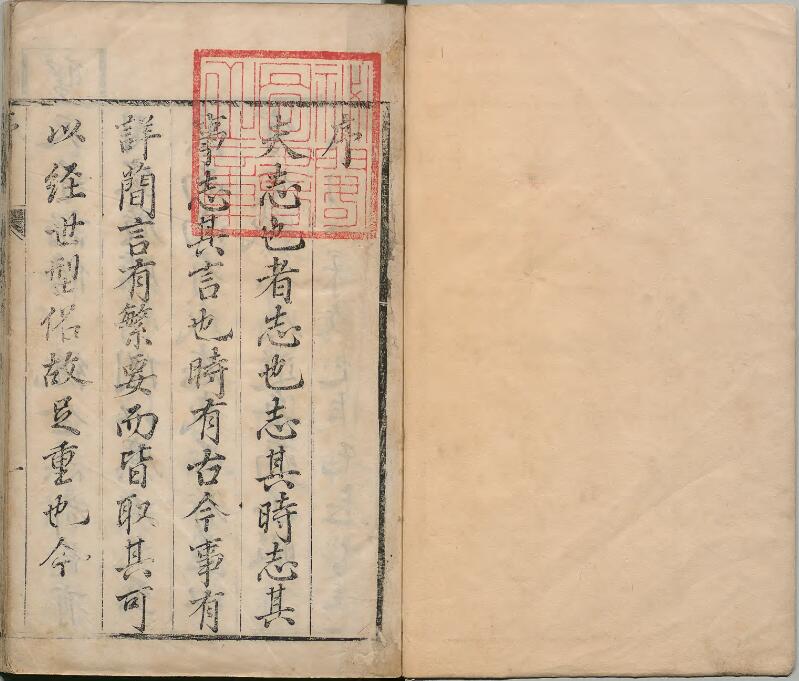 序
夫志也者志也志其時志其
事志其言也時有古今事有
詳簡言有繁要而皆取其可
以経世型俗故足重也今